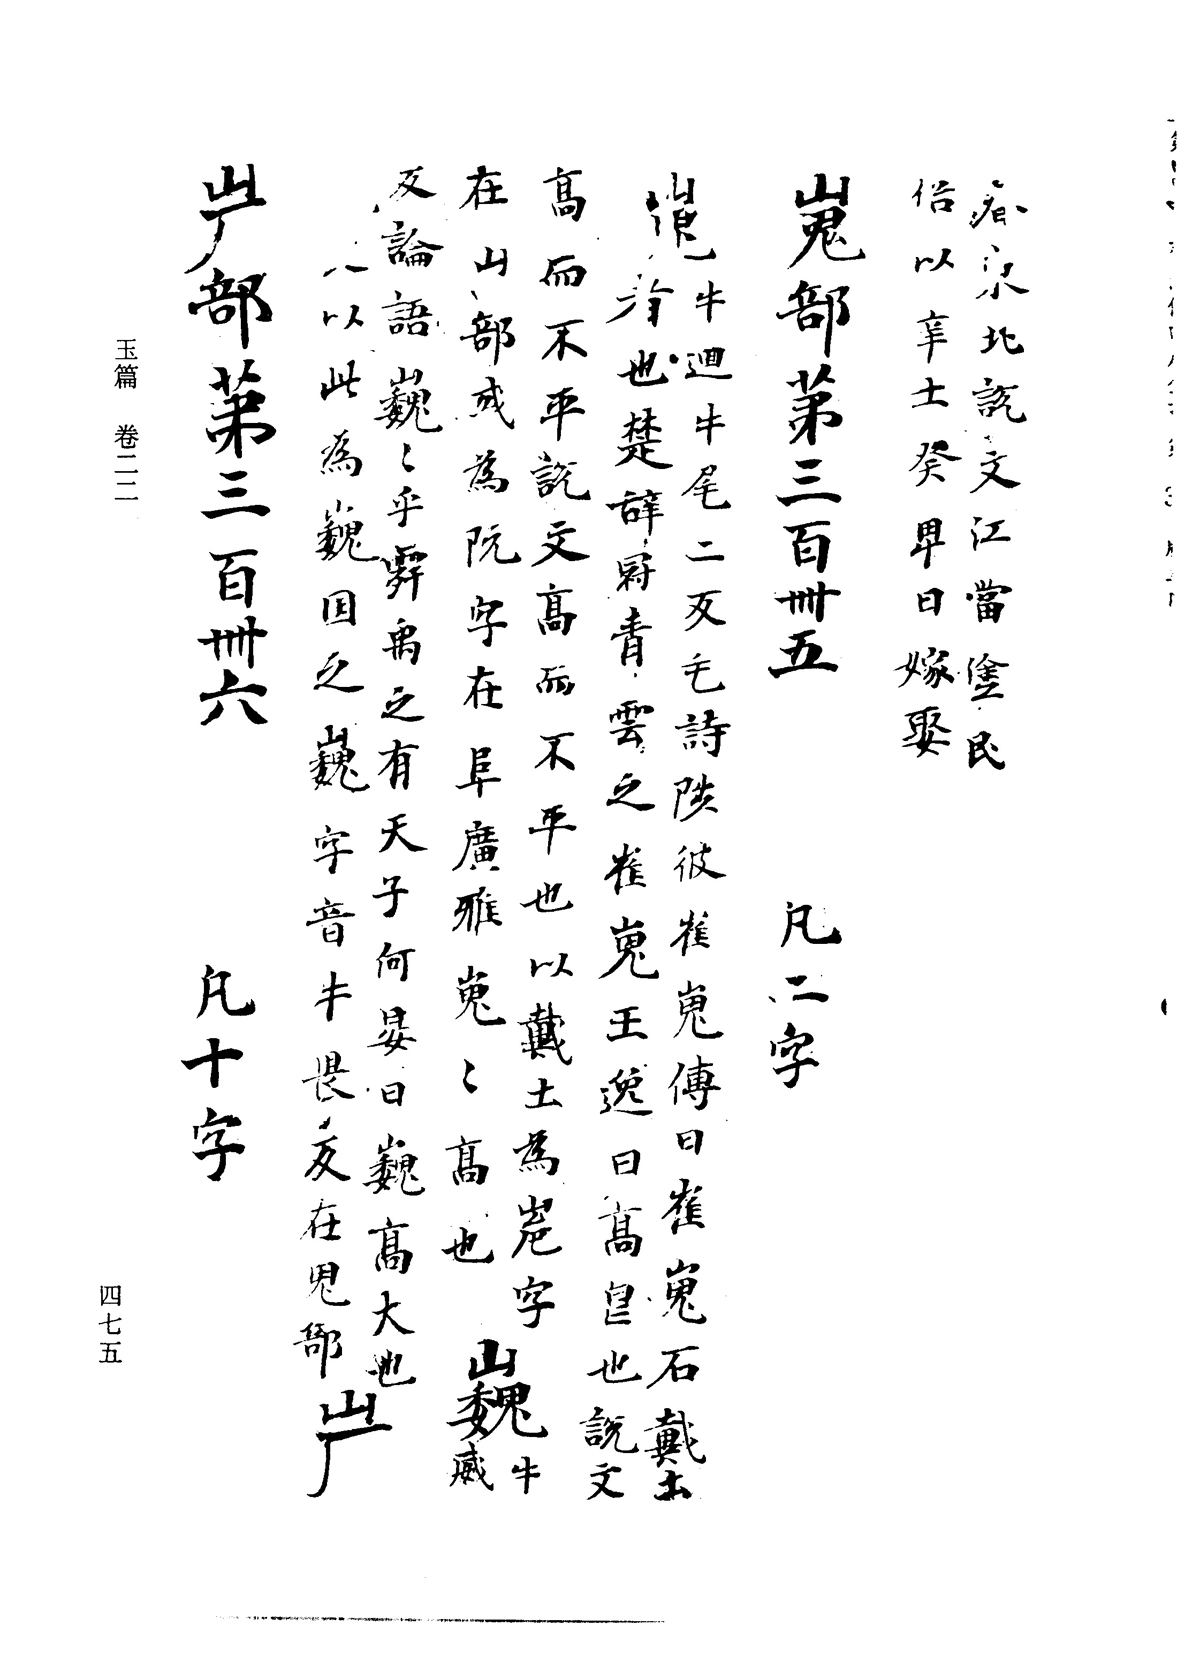 壽春北說文江當塗民
俗以辛士癸卑日嫁娶
嵬部第三百卌五 凡二字
嵬 牛廻牛尾二反毛詩陟彼崔嵬傳曰崔嵬石戴土
也楚辭冠青雲之崔嵬王逸曰高皃也說文
高而不平說文高而不平也以戴土為峞字
在山部或為阮字在阜廣雅嵬〻高也 巍 牛威
反論語巍〻乎舜禹之有天子何晏曰巍高大也
以此為巍国之巍字音牛畏反在鬼部 屵
屵部第三百卌六 凡十字
玉篇 卷二二
四七五